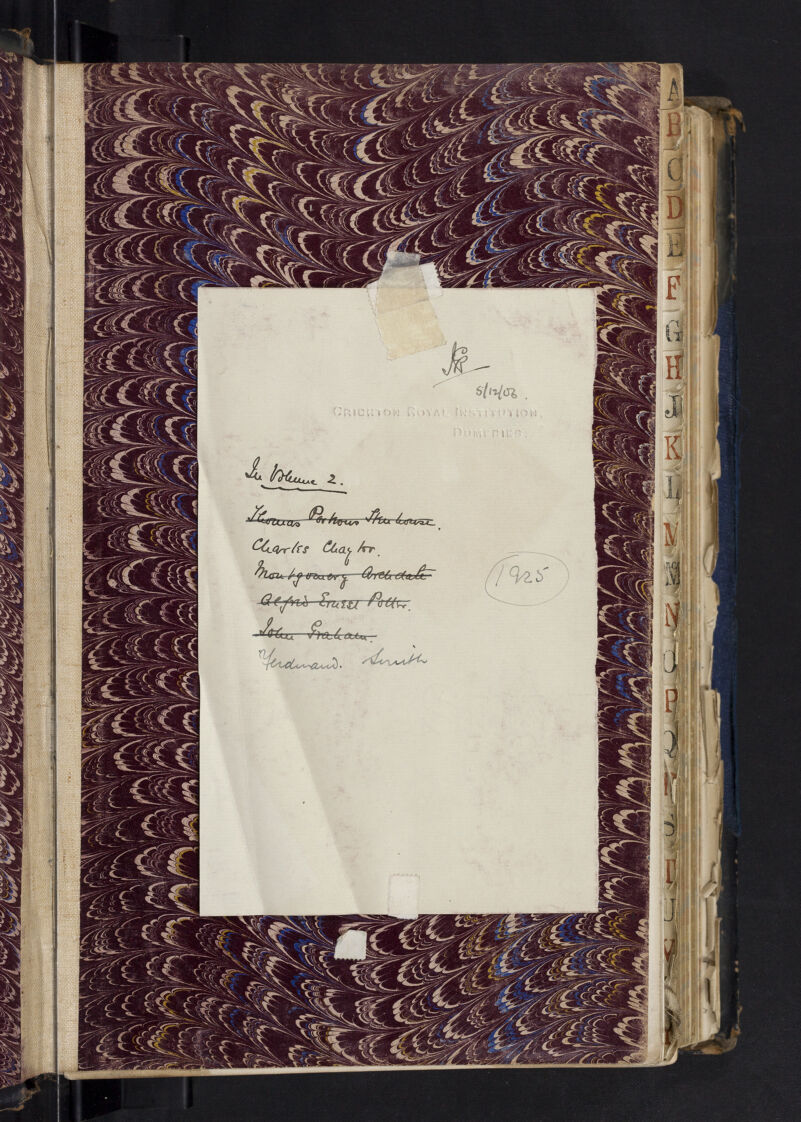 5/12/06.
CRICHTON ROYAL INSTITUTION,
DUMFRIES.
In Volume 2.
Thomas Stenhouse.
Charles Chaytor.
Montgomery Archdale
Alfred Ernest Potter.
John Graham.
Ferdinand. Smith
1925
A
B
C
D
E
F
G
H
J
K
L
M
M
N
O
P
Q
R
S
T
U